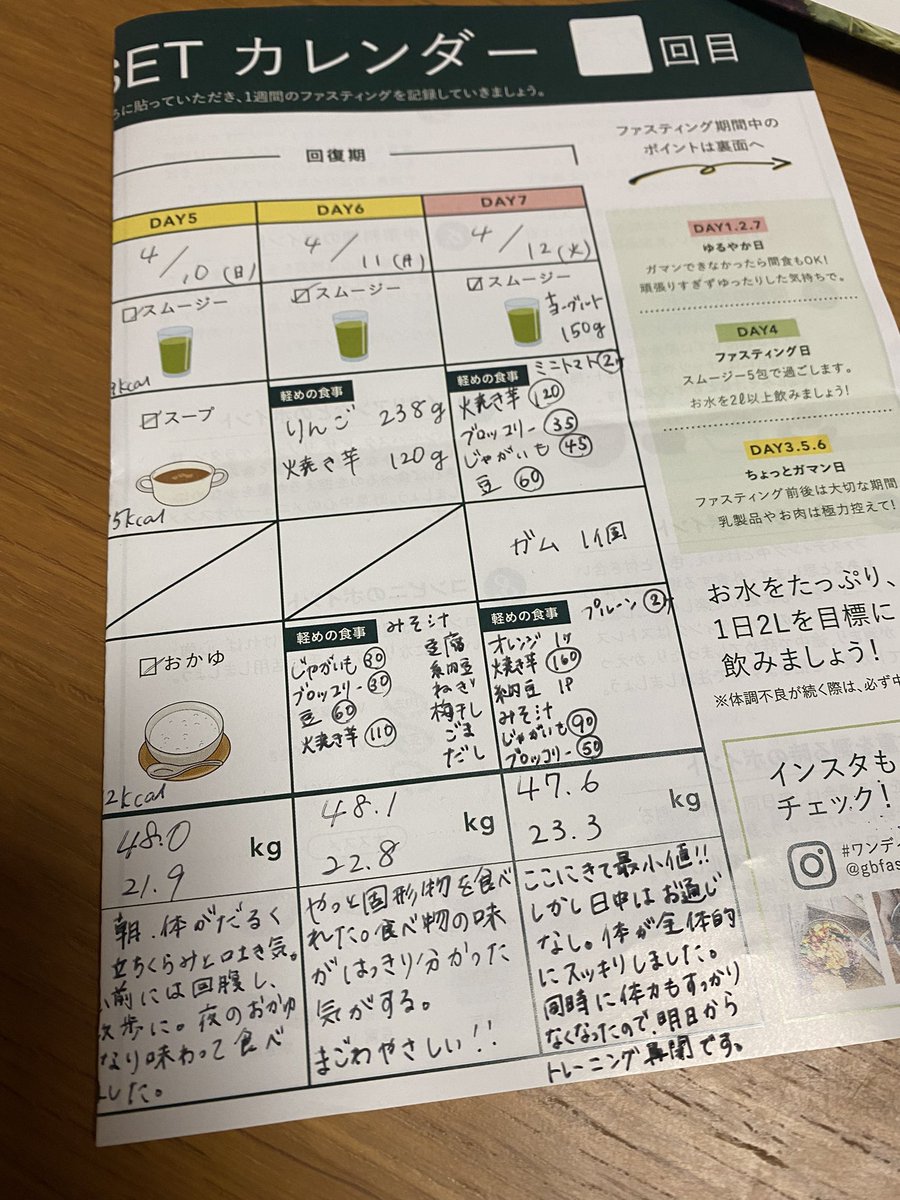 SET カレンダー 回目
ろに貼っていただき、1週間のファスティングを記録していきましょう。
回復期
ファスティング期間中の
ポイントは裏面へ
DAY5
4/10(日)
スムージー
kcal
スープ
5kcal
おかゆ
2kcal
48.0 kg
21.9
朝、体がだるく
立ちくらみと吐き気。
前には回腹し、
歩に。夜のおかゆ
なり味わって食べ
した。
DAY6
4/11(月)
スムージー
軽めの食事
りんご 238g
焼き芋 120g
軽めの食事 みそ汁
じゃがいも 30 豆腐
ブロッコリー 30 納豆
豆 60 ねぎ
焼き芋 110 梅干し
ごま
だし
48.1 kg
22.8
やっと固形物を食べ
れた。食べ物の味
がはっきり分かった
気がする。
まごわやさしい!!
DAY7
4/12(火)
スムージー
ヨーグルト
150g
軽めの食事 ミニトマト 2ケ
焼き芋 120
ブロッコリー 35
じゃがいも 45
豆 60
ガム 1個
軽めの食事 プルーン 2ケ
オレンジ 1ケ
焼き芋 160
納豆 1P
みそ汁
じゃがいも 90
ブロッコリー 50
47.6 kg
23.3
ここにきて最小値!!
しかし日中はお通じ
なし。体が全体的
にスッキリしました。
同時に体力もすっかり
なくなったので、明日から
トレーニング再開です。
DAY1.2.7
ゆるやか日
ガマンできなかったら間食もOK!
頑張りすぎずゆったりした気持ちで。
DAY4
ファスティング日
スムージー5包で過ごします。
お水を2ℓ以上飲みましょう!
DAY3.5.6
ちょっとガマン日
ファスティング前後は大切な期間
乳製品やお肉は極力控えて!
お水をたっぷり、
1日2Lを目標に
飲みましょう!
※体調不良が続く際は、必ず中
インスタも
チェック!
#ワンディ
@gbfas